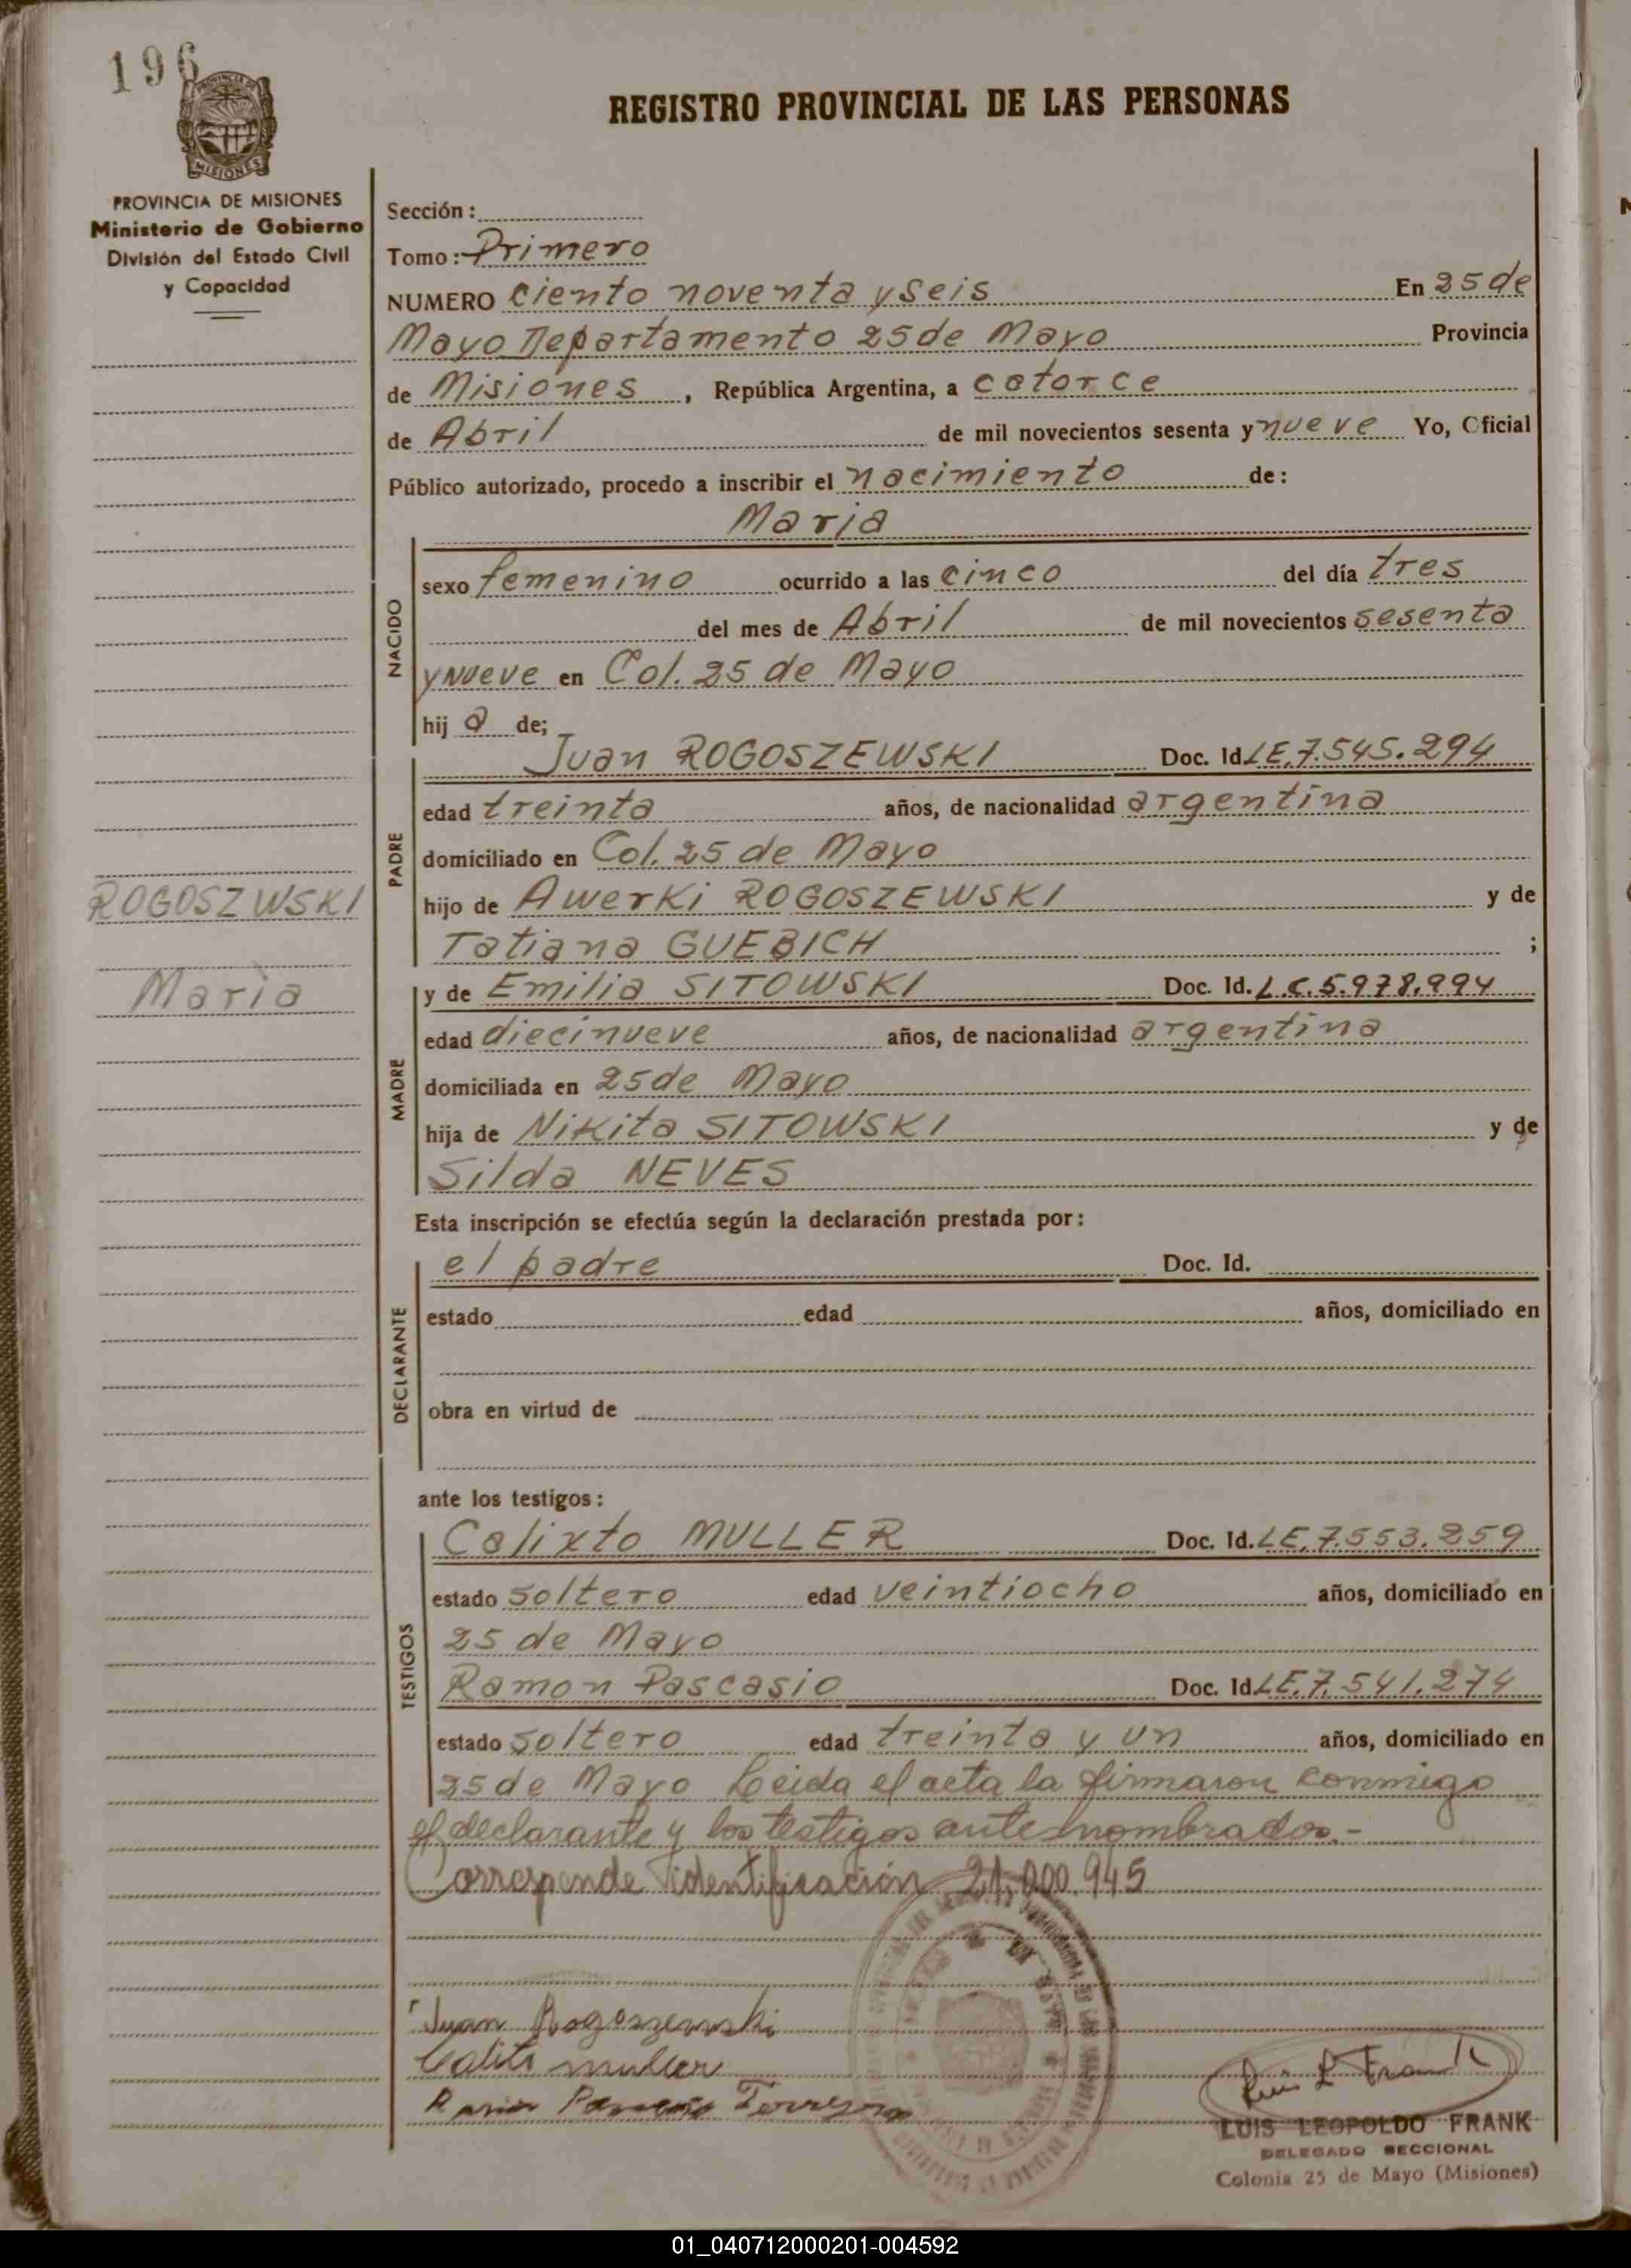 196
PROVINCIA DE
MISIONES
REGISTRO PROVINCIAL DE LAS PERSONAS
PROVINCIA DE MISIONES
Ministerio de Gobierno
División del Estado Civil
y Capacidad
Sección :
Tomo : Primero
NUMERO ciento noventa y seis En 25 de
Mayo Departamento 25 de Mayo Provincia
de Misiones , República Argentina, a catorce
de Abril de mil novecientos sesenta y nueve Yo, Oficial
Público autorizado, procedo a inscribir el nacimiento de :
Maria
NACIDO
sexo femenino ocurrido a las cinco del día tres
del mes de Abril de mil novecientos sesenta
y nueve en Col. 25 de Mayo
hij a de;
PADRE
Juan ROGOSZEWSKI Doc. Id. LE. 7.545.294
edad treinta años, de nacionalidad argentina
domiciliado en Col. 25 de Mayo
hijo de Awerki ROGOSZEWSKI y de
Tatiana GUEBICH ;
ROGOSZWSKI
Maria
MADRE
y de Emilia SITOWSKI Doc. Id. L.C. 5.978.994
edad diecinueve años, de nacionalidad argentina
domiciliada en 25 de Mayo
hija de Nikita SITOWSKI y de
Silda NEVES
Esta inscripción se efectúa según la declaración prestada por :
DECLARANTE
el padre Doc. Id.
estado edad años, domiciliado en
obra en virtud de
ante los testigos :
TESTIGOS
Calixto MULLER Doc. Id. LE. 7.553.259
estado soltero edad veintiocho años, domiciliado en
25 de Mayo
Ramon Pascasio Doc. Id. LE. 7.541.274
estado soltero edad treinta y un años, domiciliado en
25 de Mayo Leida el acta la firmaron conmigo
el declarante y los testigos antes nombrados.-
Corresponde identificación 21.000.945
Juan Rogoszewski
muller
Luis L Frank
LUIS LEOPOLDO FRANK
DELEGADO SECCIONAL
Colonia 25 de Mayo (Misiones)
01_040712000201-004592